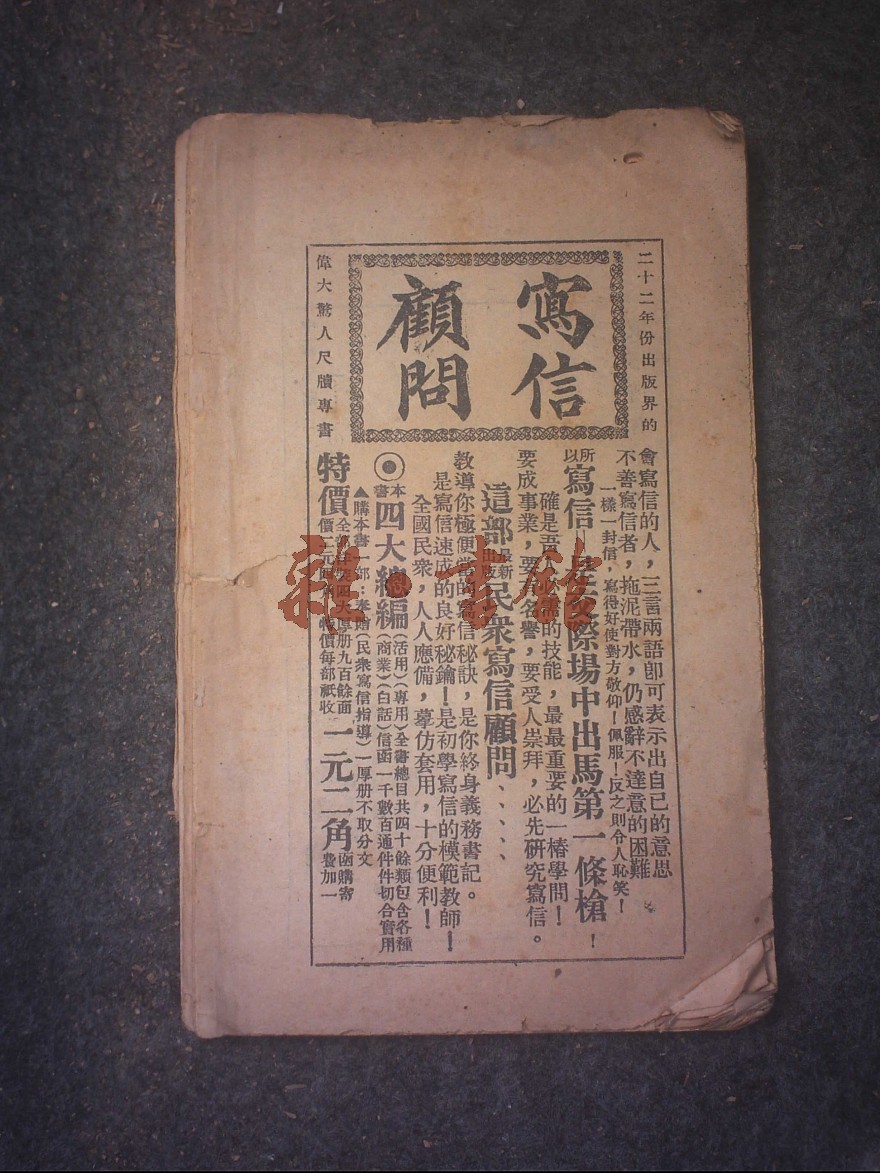 二十二年份出版界的
寫信
顧問
偉大驚人尺牘專書
會寫信的人，三言兩語卽可表示出自已的意思
不善寫信者，拖泥帶水，仍感辭不達意的困難
一樣一封信，寫得好使對方敬仰！佩服！反之則令人恥笑！
所以寫信 是交際場中出馬第一條槍！
確是吾人必需的技能，最最重要的一樁學問！
要成事業，要有名譽，要受人崇拜，必先硏究寫信。
這部最新出版民衆寫信顧問、、、、、
教導你極便當的寫信秘訣，是你終身義務書記。
是寫信速成的良好秘鑰！是初學寫信的模範教師！
全國民衆，人人應備，摹仿套用，十分便利！
◉本書四大總編（活用）（專用）（商業）（白話）全書總目共四十餘類包含各種信函一千數百通件件切合實用
▲購本書一部：奉贈（民衆寫信指導）一厚册不取分文
特價全四大厚册九百餘面價三元特價每部祇收一元二角函購寄費加一
雜·書館